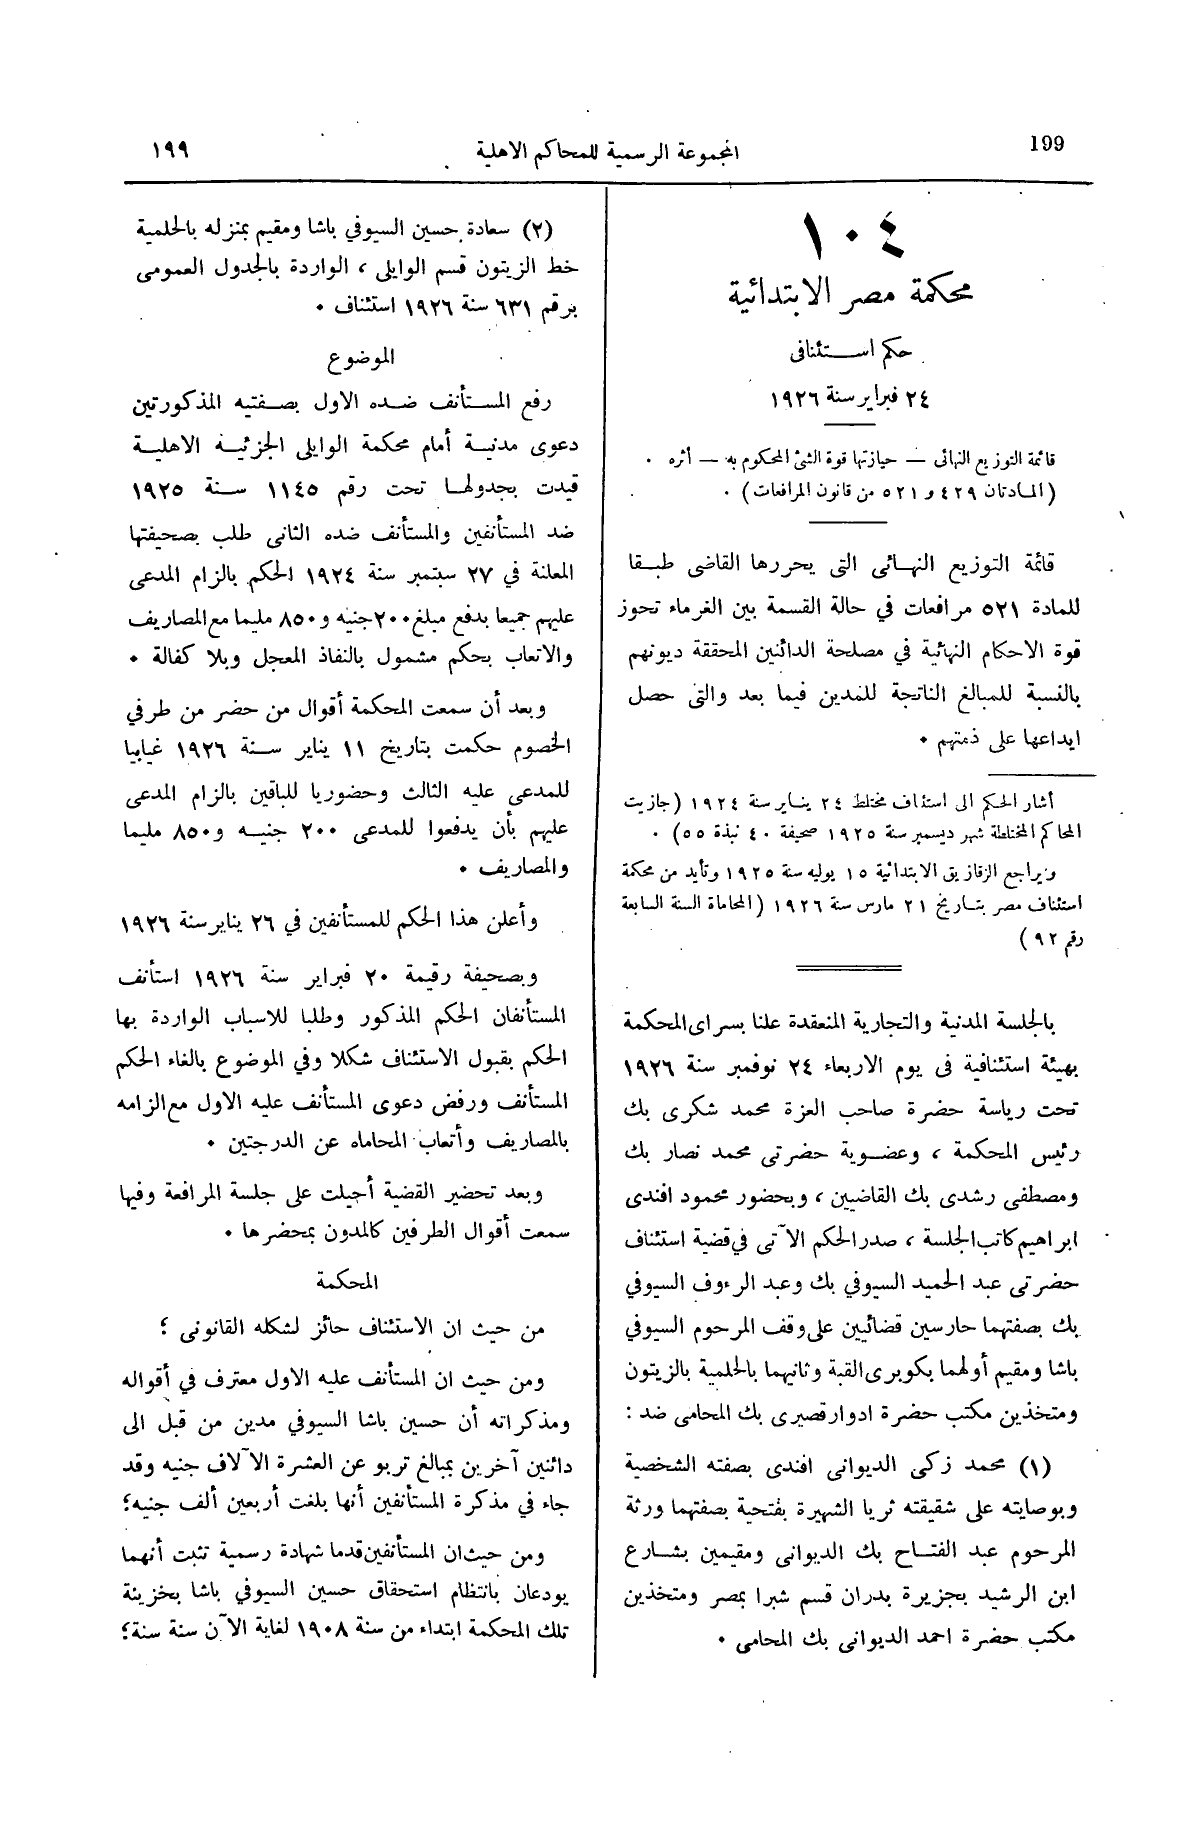 199
المجموعة الرسمية للمحاكم الاهلية
١٩٩
١٠٤
محكمة مصر الابتدائية
حكم استئنافى
٢٤ فبراير سنة ١٩٢٦
قائمة التوزيع النهائى — حيازتها قوة الشئ المحكوم به — أثره .
(المادتان ٤٢٩ و ٥٢١ من قانون المرافعات) .
قائمة التوزيع النهائى التى يحررها القاضى طبقا
للمادة ٥٢١ مرافعات في حالة القسمة بين الغرماء تحوز
قوة الاحكام النهائية في مصلحة الدائنين المحققة ديونهم
بالنسبة للمبالغ الناتجة للمدين فيما بعد والتى حصل
ايداعها على ذمتهم .
أشار الحكم الى استئناف مختلط ٢٤ يناير سنة ١٩٢٤ (جازيت
المحاكم المختلطة شهر ديسمبر سنة ١٩٢٥ صحيفة ٤٠ نبذة ٥٥) .
ويراجع الزقازيق الابتدائية ١٥ يوليه سنة ١٩٢٥ وتأيد من محكمة
استئناف مصر بتاريخ ٢١ مارس سنة ١٩٢٦ (المحاماة السنة السابعة
رقم ٩٢)
بالجلسة المدنية والتجارية المنعقدة علنا بسراى المحكمة
بهيئة استئنافية فى يوم الاربعاء ٢٤ نوفمبر سنة ١٩٢٦
تحت رياسة حضرة صاحب العزة محمد شكرى بك
رئيس المحكمة ، وعضوية حضرتى محمد نصار بك
ومصطفى رشدى بك القاضيين ، وبحضور محمود افندى
ابراهيم كاتب الجلسة ، صدر الحكم الآتى في قضية استئناف
حضرتى عبد الحميد السيوفي بك وعبد الرءوف السيوفي
بك بصفتهما حارسين قضائيين على وقف المرحوم السيوفي
باشا ومقيم أولهما بكوبرى القبة وثانيهما بالحلمية بالزيتون
ومتخذين مكتب حضرة ادوار قصيرى بك المحامى ضد :
(١) محمد زكى الديوانى افندى بصفته الشخصية
وبوصايته على شقيقته ثريا الشهيرة بفتحية بصفتهما ورثة
المرحوم عبد الفتاح بك الديوانى ومقيمين بشارع
ابن الرشيد بجزيرة بدران قسم شبرا بمصر ومتخذين
مكتب حضرة احمد الديوانى بك المحامى .
(٢) سعادة حسين السيوفي باشا ومقيم بمنزله بالحلمية
خط الزيتون قسم الوايلى ، الواردة بالجدول العمومى
برقم ٦٣١ سنة ١٩٢٦ استئناف .
الموضوع
رفع المستأنف ضده الاول بصفتيه المذكورتين
دعوى مدنية أمام محكمة الوايلى الجزئية الاهلية
قيدت بجدولها تحت رقم ١١٤٥ سنة ١٩٢٥
ضد المستأنفين والمستأنف ضده الثانى طلب بصحيفتها
المعلنة في ٢٧ سبتمبر سنة ١٩٢٤ الحكم بالزام المدعى
عليهم جميعا بدفع مبلغ ٢٠٠ جنيه و ٨٥٠ مليما مع المصاريف
والاتعاب بحكم مشمول بالنفاذ المعجل وبلا كفالة .
وبعد أن سمعت المحكمة أقوال من حضر من طرفي
الخصوم حكمت بتاريخ ١١ يناير سنة ١٩٢٦ غيابيا
للمدعى عليه الثالث وحضوريا للباقين بالزام المدعى
عليهم بأن يدفعوا للمدعى ٢٠٠ جنيه و ٨٥٠ مليما
والمصاريف .
وأعلن هذا الحكم للمستأنفين في ٢٦ يناير سنة ١٩٢٦
وبصحيفة رقيمة ٢٠ فبراير سنة ١٩٢٦ استأنف
المستأنفان الحكم المذكور وطلبا للاسباب الواردة بها
الحكم بقبول الاستئناف شكلا وفي الموضوع بالغاء الحكم
المستأنف ورفض دعوى المستأنف عليه الاول مع الزامه
بالمصاريف وأتعاب المحاماه عن الدرجتين .
وبعد تحضير القضية أحيلت على جلسة المرافعة وفيها
سمعت أقوال الطرفين كالمدون بمحضرها .
المحكمة
من حيث ان الاستئناف حائز لشكله القانونى ؛
ومن حيث ان المستأنف عليه الاول معترف في أقواله
ومذكراته أن حسين باشا السيوفي مدين من قبل الى
دائنين آخرين بمبالغ تربو عن العشرة الآلاف جنيه وقد
جاء في مذكرة المستأنفين أنها بلغت أربعين ألف جنيه ؛
ومن حيث ان المستأنفين قدما شهادة رسمية تثبت أنهما
يودعان بانتظام استحقاق حسين السيوفي باشا بخزينة
تلك المحكمة ابتداء من سنة ١٩٠٨ لغاية الآن سنة سنة ؛